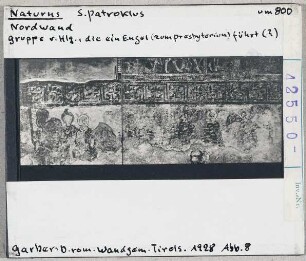 Naturns S. Patroklus um 800
Nordwand
Gruppe v. Hlg., die ein Engel (zum Presbyterium) führt (?)
12550-1
Garber: D. rom. Wandgem. Tirols. 1928 Abb. 8